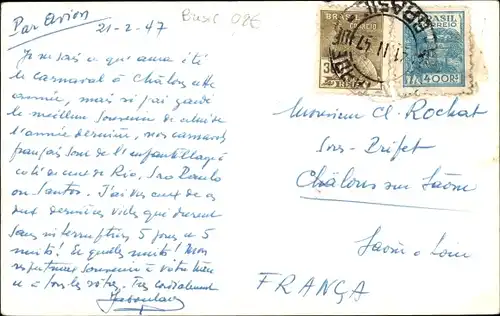 Par avion
21-2-47
Brasil 08€
Je ne sais ce qu'aura été
le carnaval à Châlons cette
année, mais si j'ai gardé
le meilleur souvenir de celui de
l'année dernière, nos carnavals
français sont de l'enfantillage à
côté de ceux de Rio, Sao Paulo
ou Santos. J'ai vu ceux de ces
deux dernières villes qui durent
sans interruption 5 jours et 5
nuits! Et quelles nuits! Mon
respectueux souvenir à votre
et à tous les vôtres. Très cordialement
BRASIL CORREIO
BRASIL CORREIO
400 RS
BRASIL
Monsieur Cl. Rochat
Châlons sur Saône
Saône et Loire
FRANÇA